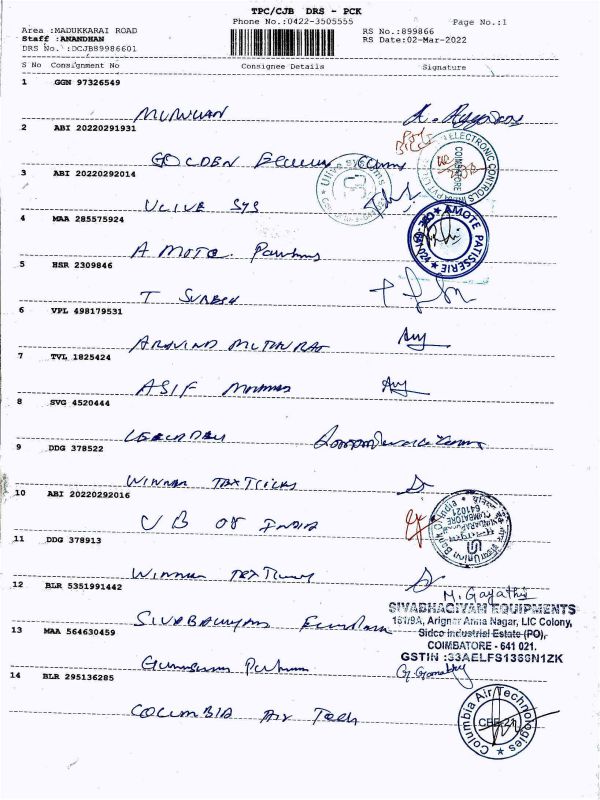 TPC/CJB DRS - PCK
Phone No.:0422-3505555
Page No.:1
Area :MADUKKARAI ROAD
RS No.:899866
Staff :ANANDHAN
RS Date:02-Mar-2022
DRS No.:DCJB89986601
S No Consignment No Consignee Details Signature
1 GGN 97326549
MURUGAN
2 ABI 20220291931
GOLDEN
ELECTRONIC CONTROLS
COIMBATORE
3 ABI 20220292014
Ulive systems
ULIVE SYS
4 MAA 285575924
AMOTE PATISSERIE
A MOTE
5 HSR 2309846
T SURESH
6 VPL 498179531
ARAVIND MUTHURAJ
7 TVL 1825424
ASIF
8 SVG 4520444
9 DDG 378522
WINNER TEXTILES
10 ABI 20220292016
U B OF INDIA
Union Bank of India
COIMBATORE
641021
11 DDG 378913
WINNER TEXTILES
12 BLR 5351991442
M. Gayathri
SIVABHAGIYAM EQUIPMENTS
181/9A, Arignar Anna Nagar, LIC Colony,
Sidco Industrial Estate (PO),
COIMBATORE - 641 021.
GSTIN :33AELFS1366N1ZK
13 MAA 564630459
14 BLR 295136285
COLUMBIA Air Tech
Columbia Air Technologies
CBE-21